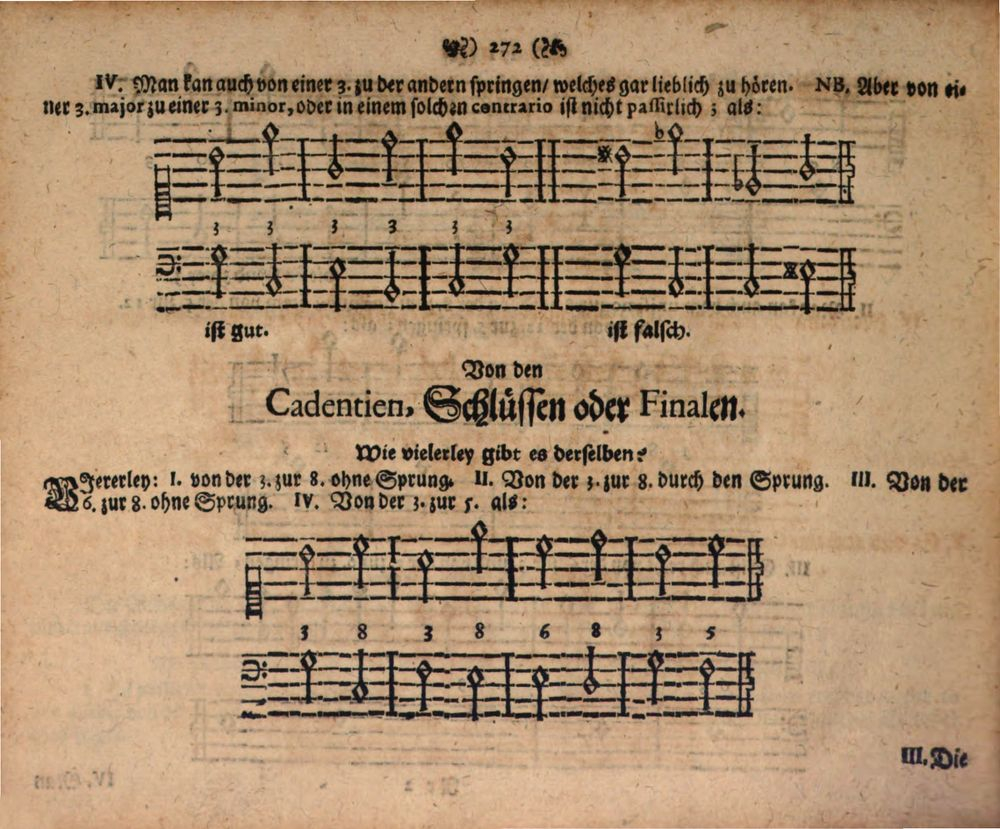 ) 272 (
IV. Man kan auch von einer 3. zu der andern springen/ welches gar lieblich zu hören. NB. Aber von ei-
ner 3. major zu einer 3. minor, oder in einem solchen contrario ist nicht passirlich; als:
3 3 3 3 3 3
ist gut. ist falsch.
Von den
Cadentien, Schlüssen oder Finalen.
Wie vielerley gibt es derselben?
Viererley: I. von der 3. zur 8. ohne Sprung. II. Von der 3. zur 8. durch den Sprung. III. Von der
6. zur 8. ohne Sprung. IV. Von der 3. zur 5. als:
3 8 3 8 6 8 3 5
III. Die